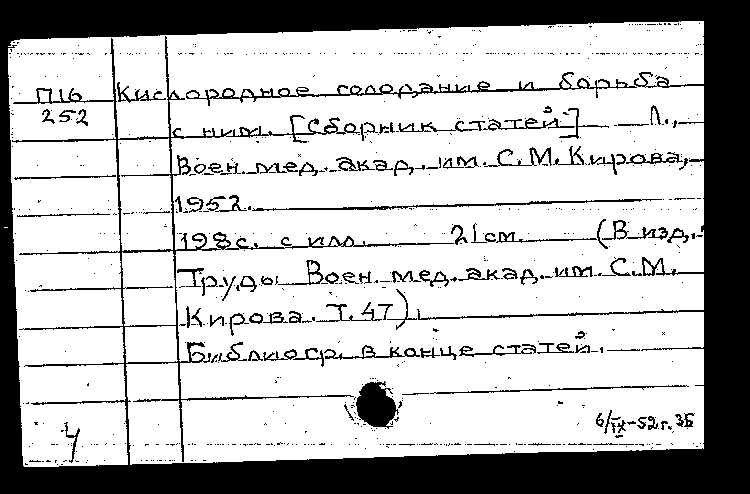 П16 Кислородное голодание и борьба
252 с ним. [Сборник статей] Л.,
Воен. мед. акад. им. С. М. Кирова,
1952.
198с. с илл. 21см. (В изд.:
Труды Воен. мед. акад. им. С.М.
Кирова. Т. 47).
Библиогр. в конце статей.
Ч 6/IX-52г. ЗБ